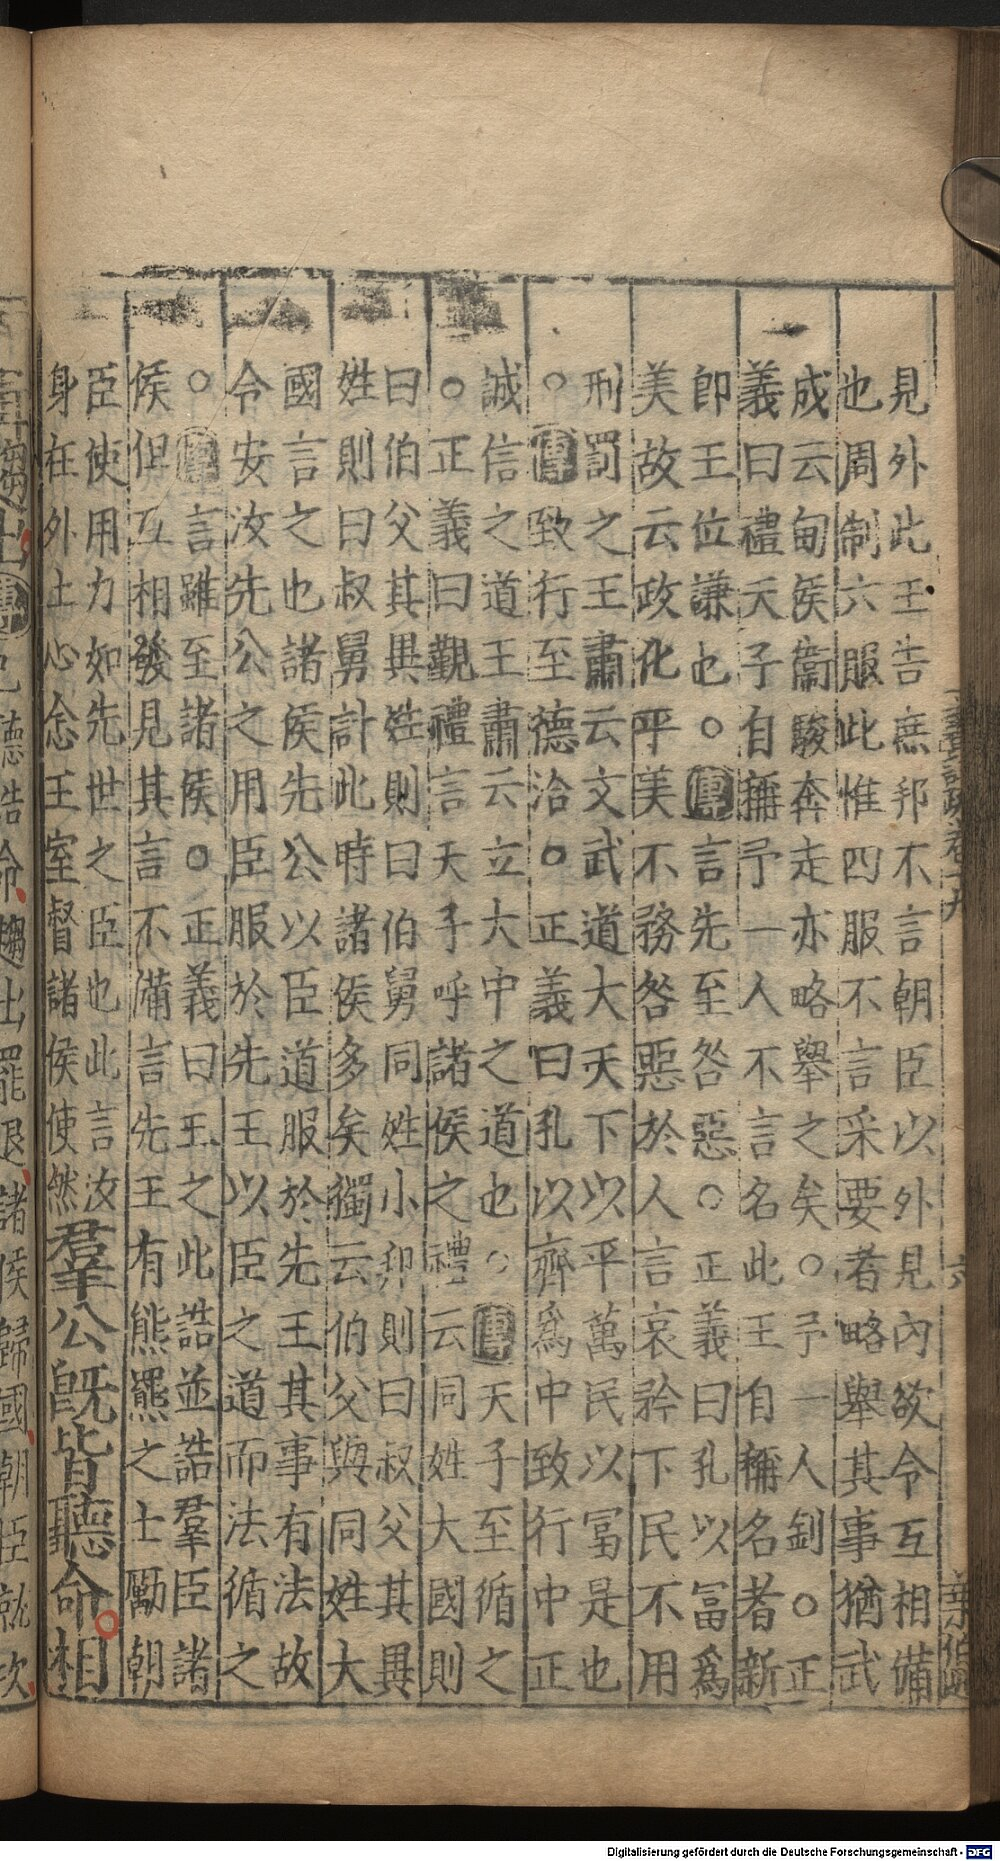 見外此王告庶邦不言朝臣以外見內欲令互相備
也周制六服此惟四服不言采要者略舉其事猶武
成云甸侯衞駿奔走亦略舉之矣○予一人釗○正
義曰禮天子自稱予一人不言名此王自稱名者新
即王位謙也○傳言先至咎惡○正義曰孔以冨爲
美故云政化平美不務咎惡於人言哀矜下民不用
刑罰之王肅云文武道大天下以平萬民以冨是也
○傳致行至德洽○正義曰孔以齊爲中致行中正
誠信之道王肅云立大中之道也○傳天子至循之
○正義曰覲禮言天子呼諸侯之禮云同姓大國則
曰伯父其異姓則曰伯舅同姓小邦則曰叔父其異
姓則曰叔舅計此時諸侯多矣獨云伯父與同姓大
國言之也諸侯先公以臣道服於先王其事有法故
令安汝先公之用臣服於先王以臣之道而法循之
○傳言雖至諸侯○正義曰王之此誥並誥羣臣諸
侯但互相發見其言不備言先王有熊羆之士勵朝
臣使用力如先世之臣也此言汝
身在外土心念王室督諸侯使然
羣公旣皆聽命相
六
趨出罷退諸侯歸國朝臣就次
Digitalisierung gefördert durch die Deutsche Forschungsgemeinschaft - DFG